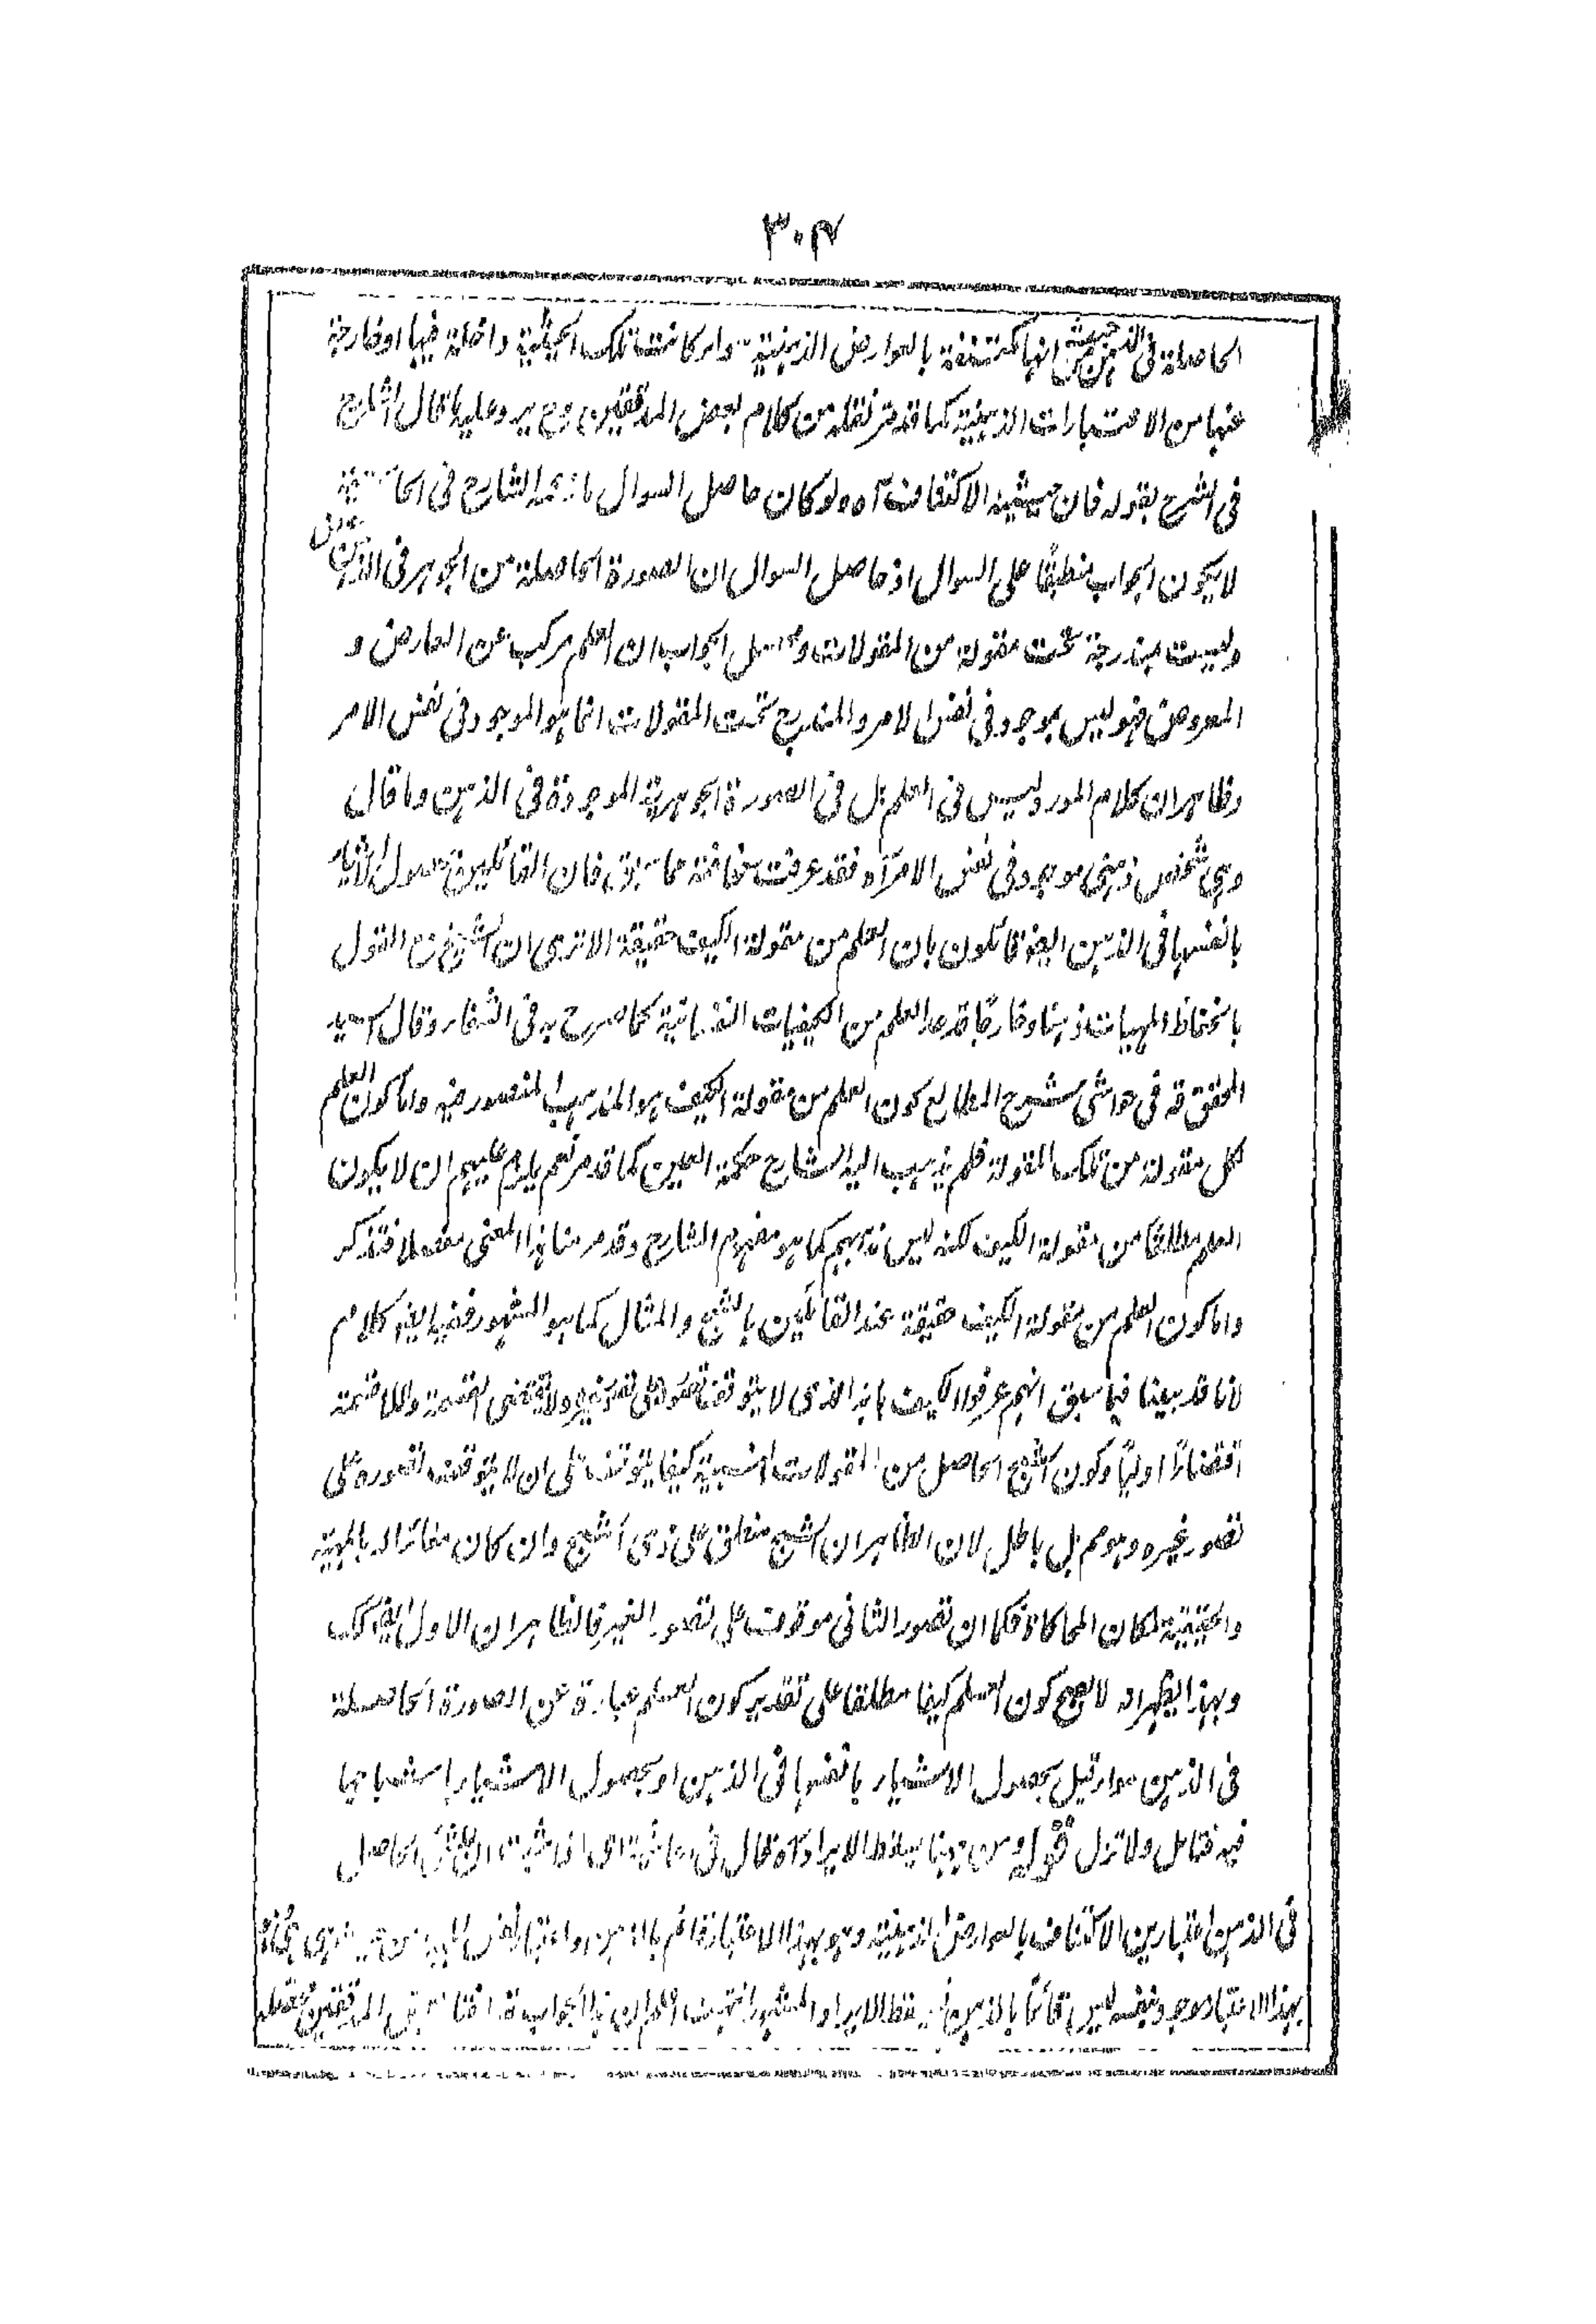 ٣٠٤
الحاصلة فى الذهن من حيث انها مكتنفة بالعوارض الذهنية سواء كانت تلك الحيثية داخلة فيها او خارجة
عنها من الاعتبارات الذهنية كما قد مر نقله من كلام بعض المدققين وح يرد عليه ما قال الشارح
فى الشرح بقوله فان حيثية الاكتفاف آه ولو كان حاصل السوال ما زعمه الشارح فى الحاشية
لا يكون الجواب منطبقًا على السوال اذ حاصل السوال ان الصورة الحاصلة من الجوهر فى الذهن عرض
وليست مندرجة تحت مقولة من المقولات وحاصل الجواب ان العلم مركب عن العارض و
المعروض فهو ليس بموجود فى نفس الامر والمندرج تحت المقولات انما هو الموجود فى نفس الامر
وظاهر ان كلام المورد ليس فى العلم بل فى الصورة الجوهرية الموجودة فى الذهن وما قال
وهى شخص ذهنى موجود فى نفس الامر آه فقد عرفت سخافته مما سبق فان القائلين بحصول الاشياء
بانفسها فى الذهن ايضا قائلون بان العلم من مقولة الكيف حقيقة الا ترى ان الشيخ مع القول
بانحفاظ المهيات ذهنا وخارجًا قد عد العلم من الكيفيات النفسانية كما صرح به فى الشفاء وقال السيد
المحقق قه فى حواشى شرح المطالع كون العلم من مقولة الكيف هو المذهب المنصور فيه واما كون العلم
بكل مقولة من تلك المقولة فلم يذهب اليه الشارح حكمة العين كما قد مر نعم يلزم عليهم ان لا يكون
العلم مطلقا من مقولة الكيف لكنه ليس مذهبهم كما هو مفهوم الشارح وقد مر منا هذا المعنى مفصلا فتذكر
واما كون العلم من مقولة الكيف حقيقة عند القائلين بالشبح والمثال كما هو المشهور ففيه ايضا كلام
لانا قد بينا فيما سبق انهم عرفوا الكيف بانه الذى لا يتوقف تصوره على تصور غيره ولا يقتضى القسمة واللاقسمة
اقتضاءً اوليًا وكون الشبح الحاصل من المقولات النسبية كيفا يتوقف على ان لا يتوقف تصوره على
تصور غيره وهو مم بل باطل لان الظاهر ان الشبح منطبق على ذى الشبح وان كان مغائرا له بالمهية
والحقيقة لمكان المحاكاة فكما ان تصور الثانى موقوف على تصور الغير فالظاهر ان الاول ايضا كك
وبهذا يظهر انه لا يصح كون العلم كيفا مطلقا على تقدير كون العلم عبارة عن الصورة الحاصلة
فى الذهن سواء قيل بحصول الاشياء بانفسها فى الذهن او بحصول الاشياء باشباحها
فيه فتامل ولا تزل قوله ومن ههنا يسقط الايراد آه قال فى الحاشية اى اذا ثبت ان للشئ الحاصل
فى الذهن اعتبارين الاكتناف بالعوارض الذهنية وهو بهذا الاعتبار قائم بالذهن واعتبار نفس المهية من حيث هى هى
بهذا الاعتبار موجود بنفسه ليس قائما بالذهن يسقط الايراد المشهور انتهت اعلم ان هذا الجواب